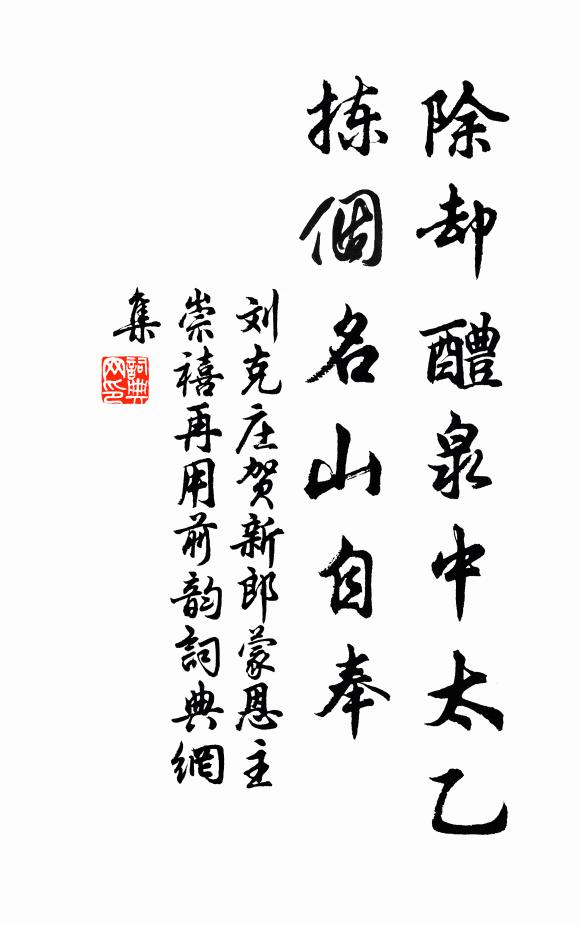 除却醴泉中太乙
拣個名山自奉
刘克庄贺新郎蒙恩主
崇禧再用前韵詞典網
集
詞典
网印